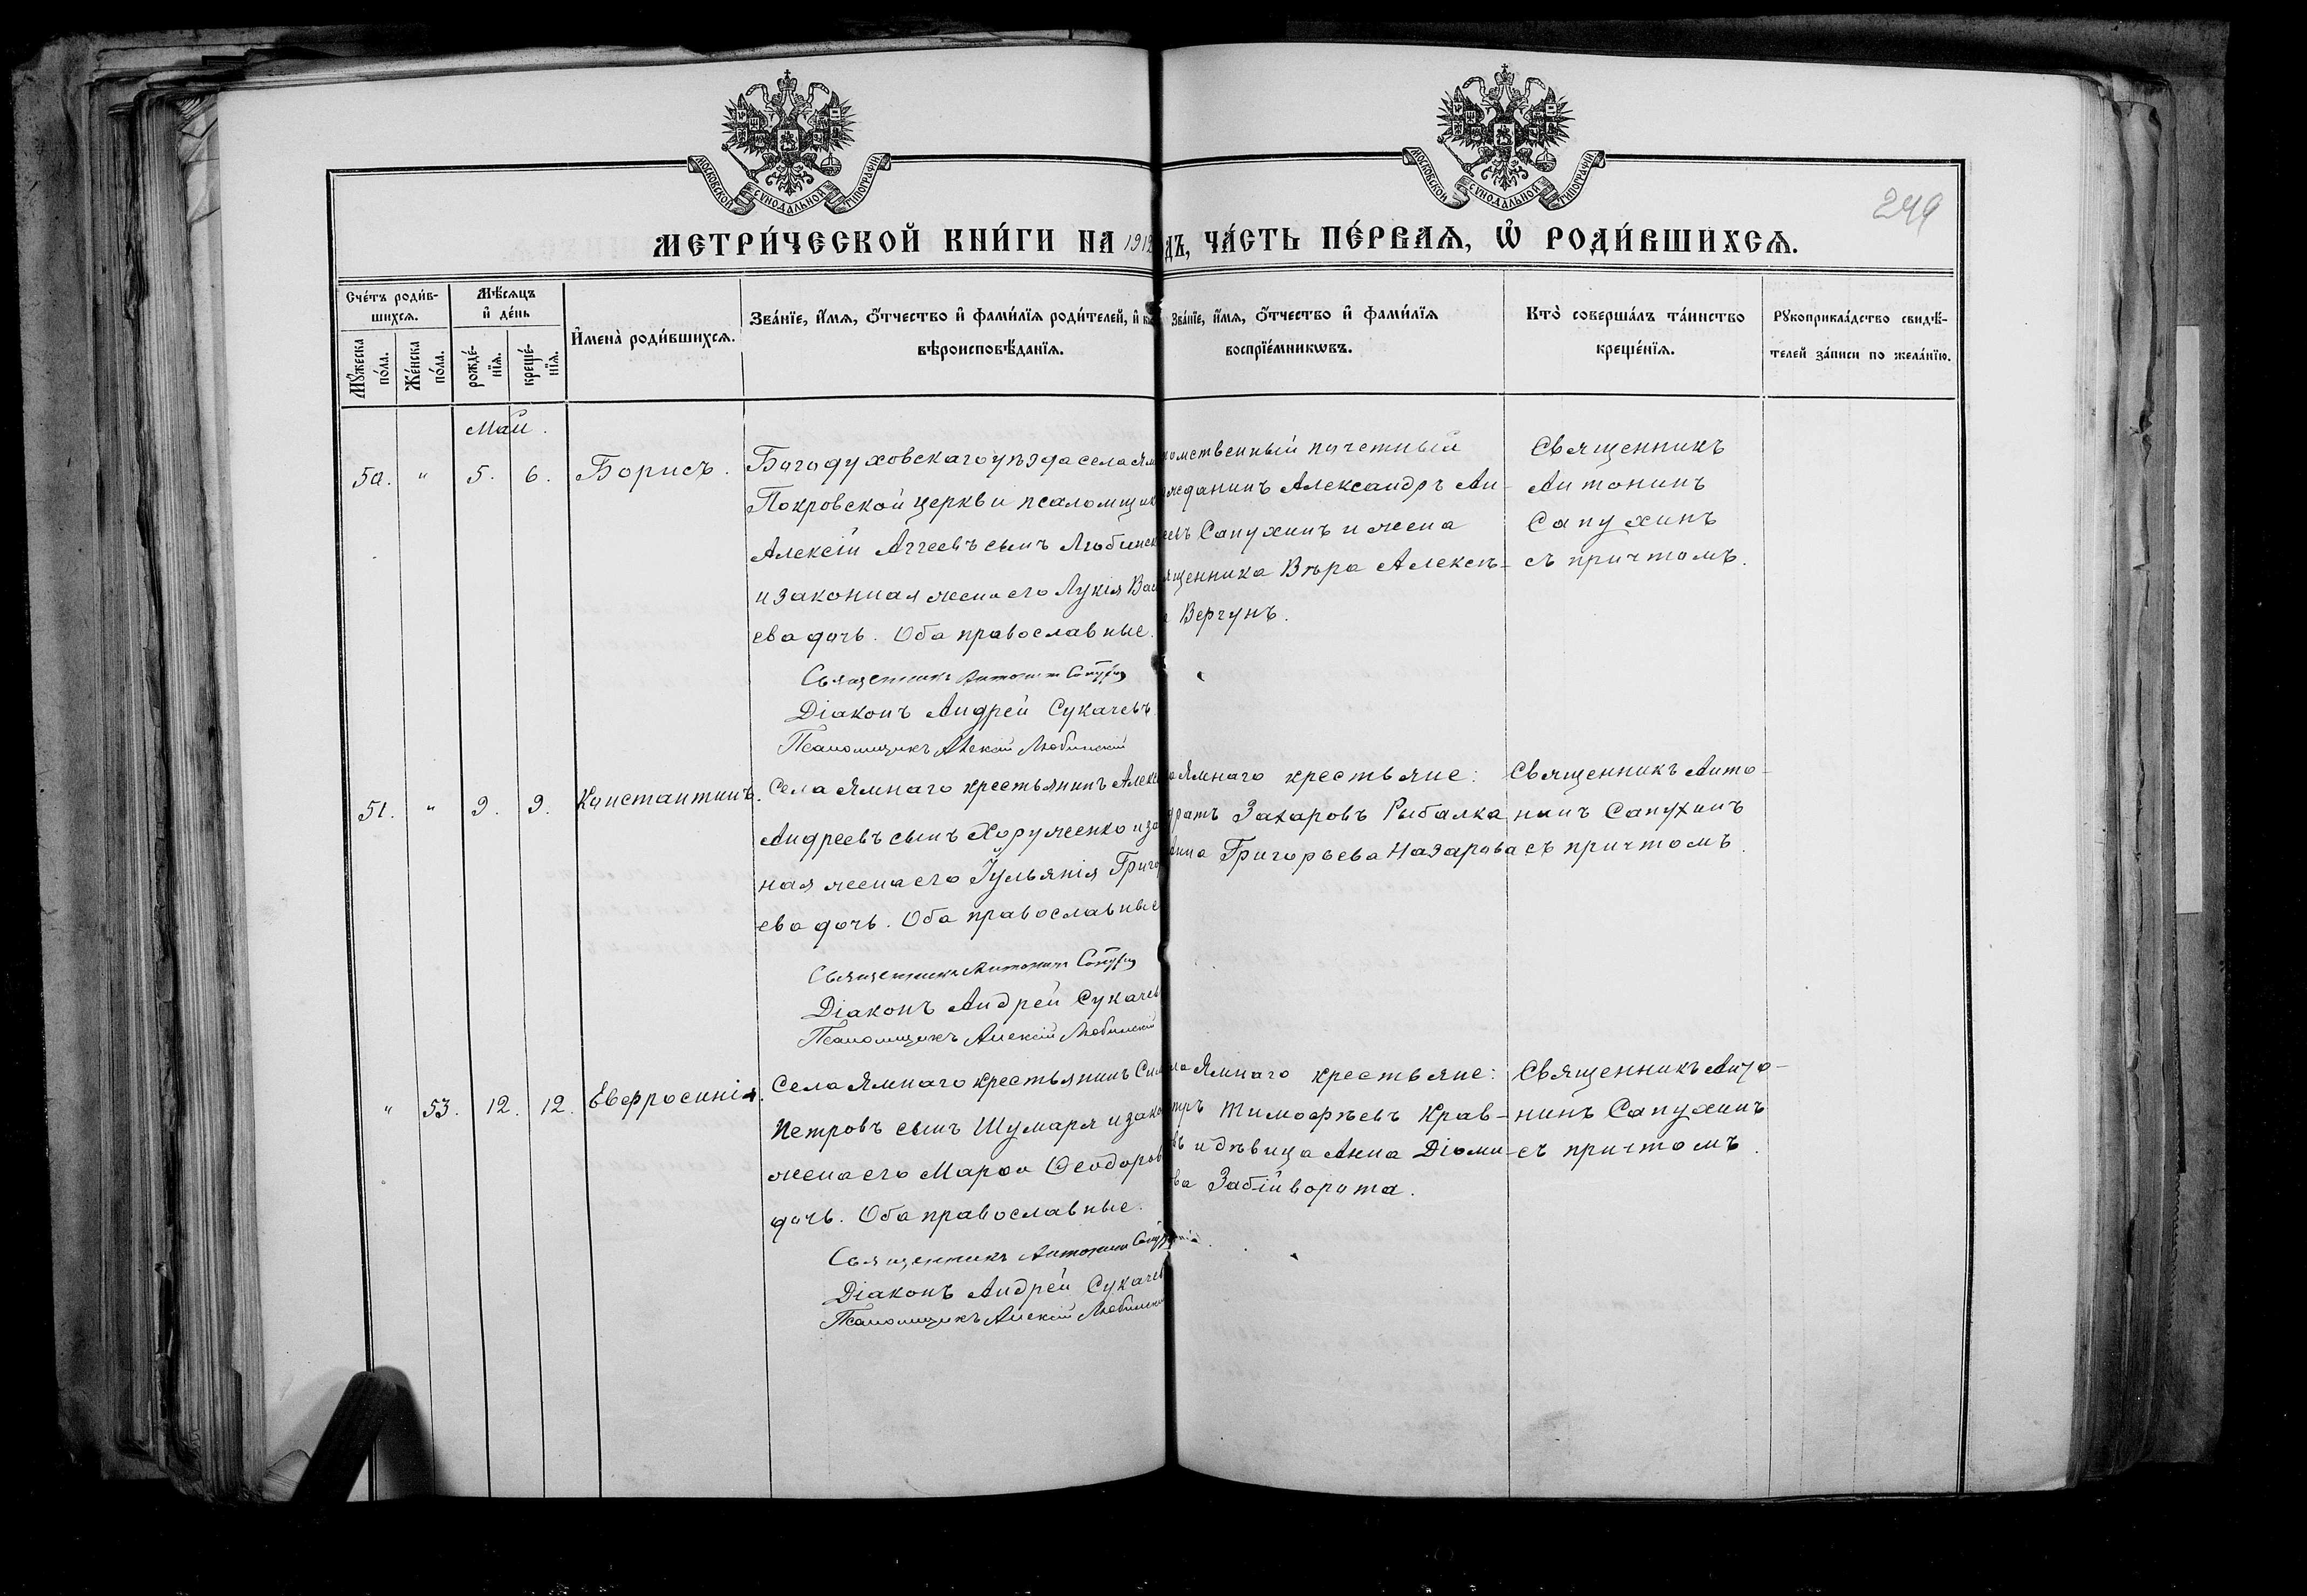 МОСКОВСКОЙ СѴНОДАЛЬНОЙ ТИПОГРАФІИ
МОСКОВСКОЙ СѴНОДАЛЬНОЙ ТИПОГРАФІИ
МЕТРИ́ЧЕСКОЙ КНИ́ГИ НА 1912
дъ, ЧА́СТЬ ПЕ́РВАЯ, Ѽ РОДИ́ВШИХСЯ.
Сче́тъ роди́в-
шихся.
Мѣ́сяцъ
и҆ де́нь
Мꙋ́жеска
по́ла.
Же́нска
по́ла.
рожде́-
нїя.
креще́-
нїя.
И҆мена̀ роди́вшихся.
Зва́нїе, и҆́мя, ѻ҆́тчество и҆ фами́лїя роди́телей, и҆
вѣроисповѣ́данїя.
Зва́нїе, и҆́мя, ѻ҆́тчество и҆ фами́лїя
воспрїе́мникѡвъ.
Кто̀ соверша́лъ та́инство
креще́нїя.
Рꙋкоприкла́дство свидѣ́-
телей за́писи по жела́нїю.
Май.
50. " 5. 6. Борисъ.
Богодуховскаго уѣзда села Ям
Покровской церкви псаломщик
Алексій Аггеевъ сынъ Любинск
и законная жена его Лукія Вас
ева дочь. Оба православные.
Священникъ Антонин Сапухин
Діаконъ Андрей Сукачевъ
Псаломщикъ Алексій Любинскій
омственный почетный
жданинъ Александръ Ан-
евъ Сапухинъ и жена
щенника Вѣра Алексѣ-
а Вергунъ.
Священникъ
Антонинъ
Сапухинъ
съ причтомъ.
51. " 9. 9. Константинъ.
Села Ямнаго крестьянинъ Алекс
Андреевъ сынъ Хоруженко и за
ная жена его Іульянія Григо
ева дочь. Оба православные
Священникъ Антонинъ Сапухин
Діаконъ Андрей Сукачев
Псаломщикъ Алексій Любинскій
а Ямнаго крестьяне:
дратъ Захаровъ Рыбалка
Григорьева Назарова
Священникъ Анто-
нинъ Сапухинъ
съ причтомъ.
" 53. 12. 12. Евфросинія.
Села Ямнаго крестьянинъ
Петровъ сынъ Шумаря и зако
жена его Марѳа Ѳеодоров
дочь. Оба православные.
Священникъ Антонин Сапухин
Діаконъ Андрей Сукачев
Псаломщикъ Алексій Любинск
ла Ямнаго крестьяне:
тръ Тимоѳѣевъ Крав-
въ и дѣвица Анна Діоми-
ва Забійворота.
Священникъ Анто-
нинъ Сапухинъ
съ причтомъ.